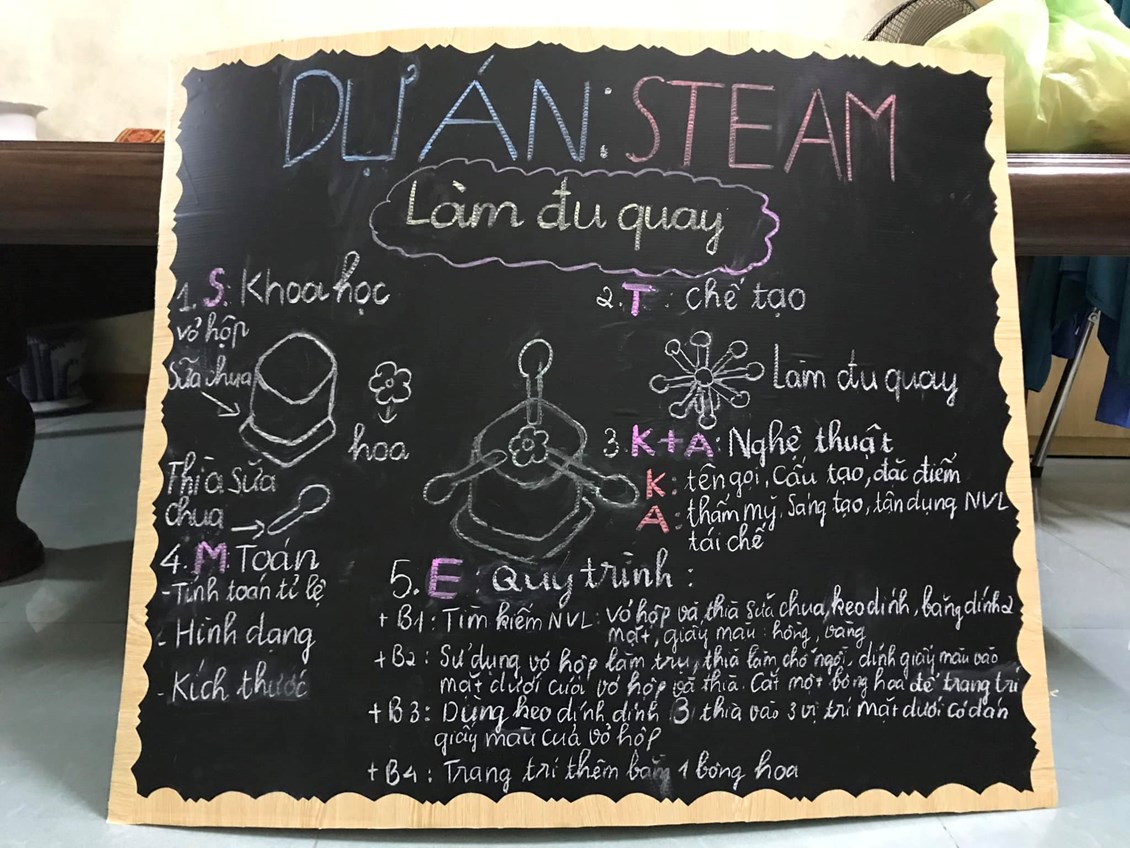 DỰ ÁN: STEAM
Làm đu quay
1. S: Khoa học
vỏ hộp
Sữa chua
hoa
Thìa sữa
chua
2. T: chế tạo
Làm đu quay
3. K+A: Nghệ thuật
K: tên gọi, Cấu tạo, đặc điểm
A: thẩm mỹ. Sáng tạo, tận dụng NVL
tái chế
4. M Toán
- Tính toán tỉ lệ
- Hình dạng
- Kích thước
5. E: Quy trình:
+ B1: Tìm kiếm NVL: vỏ hộp và thìa sữa chua, keo dính, băng dính 2
mặt, giấy màu: hồng, vàng
+ B2: Sử dụng vỏ hộp làm trụ, thìa làm chỗ ngồi, dính giấy màu vào
mặt dưới cuối vỏ hộp và thìa. Cắt một bông hoa để trang trí
+ B3: Dùng keo dính dính 3 thìa vào 3 vị trí mặt dưới có dán
giấy màu của vỏ hộp
+ B4: Trang trí thêm bằng 1 bông hoa